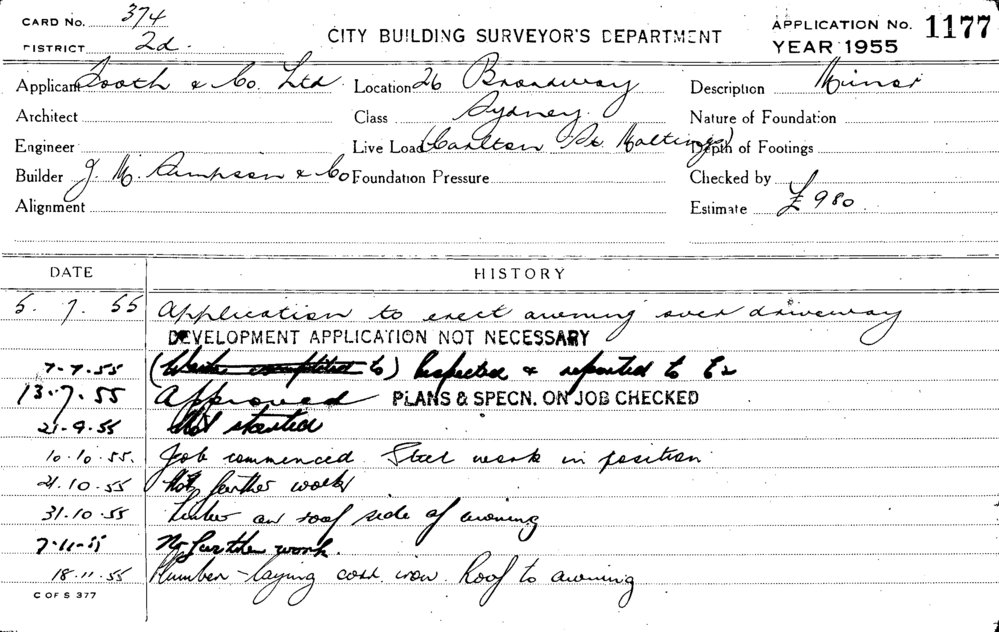 CARD No. 374
DISTRICT 2d.
CITY BUILDING SURVEYOR'S DEPARTMENT
APPLICATION No. 1177
YEAR 1955
Applicant Tooth & Co. Ltd
Location 26 Broadway
Description Minor
Architect
Class Sydney.
Nature of Foundation
Engineer
Live Load (Carlton St. Maltings)
Depth of Footings
Builder J. M. Simpson & Co
Foundation Pressure
Checked by
Alignment
Estimate £980.
DATE HISTORY
5. 7. 55 Application to erect awning over driveway
DEVELOPMENT APPLICATION NOT NECESSARY
7-7-55 Inspected & reported to
13.7.55 Approved PLANS & SPECN. ON JOB CHECKED
21-9-55 Not started
10.10.55. Job commenced Steel work in position
21.10.55 further work
31.10.55 Timber on roof side of awning
7-11-55 No further work.
18.11.55 Plumber laying iron Roof to awning
C OF S 377